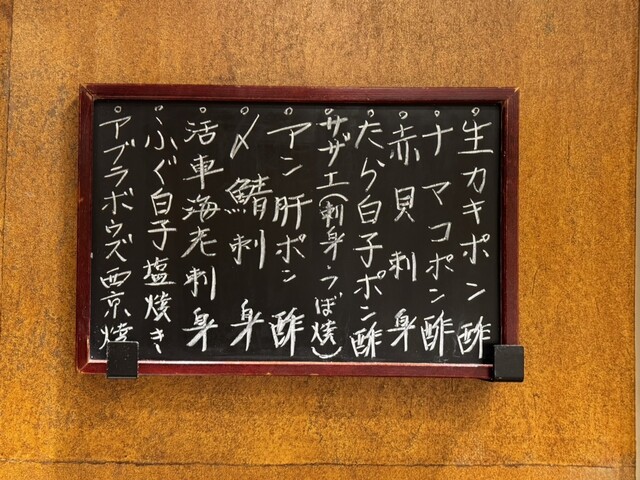 。生カキポン酢
。ナマコポン酢
。赤貝刺身
。たら白子ポン酢
。サザエ(刺身・つぼ焼)
。アン肝ポン酢
。〆鯖刺身
。活車海老刺身
。ふぐ白子塩焼き
。アブラボウズ西京焼